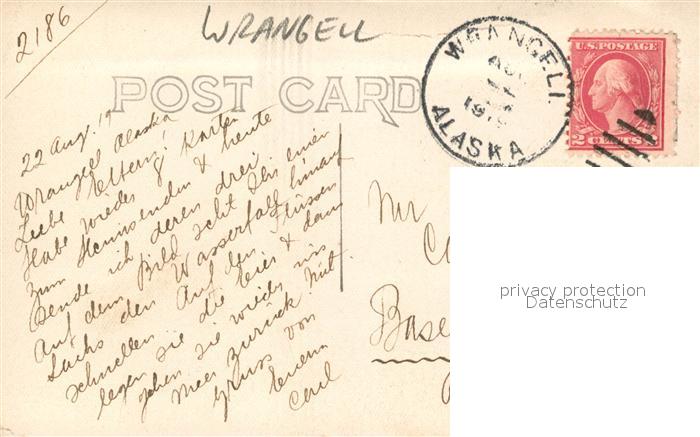 2186
WRANGELL
POST CARD
WRANGELL
AU
19
ALASKA
U.S. POSTAGE
2 CENTS 2
22 Aug. 19
Wrangel Alaska
Liebe Eltern!
Habe wieder 8 Karten
zum Heimsenden & heute
sende ich deren drei.
Auf dem Bild seht Ihr einen
Lachs den Wasserfall hinauf
schnellen. Auf den Flüssen
legen sie die Eier & dann
gehen sie wieder ins
Meer zurück. Mit
Gruss von
Eurem
Carl
Mr
Base
privacy protection
Datenschutz